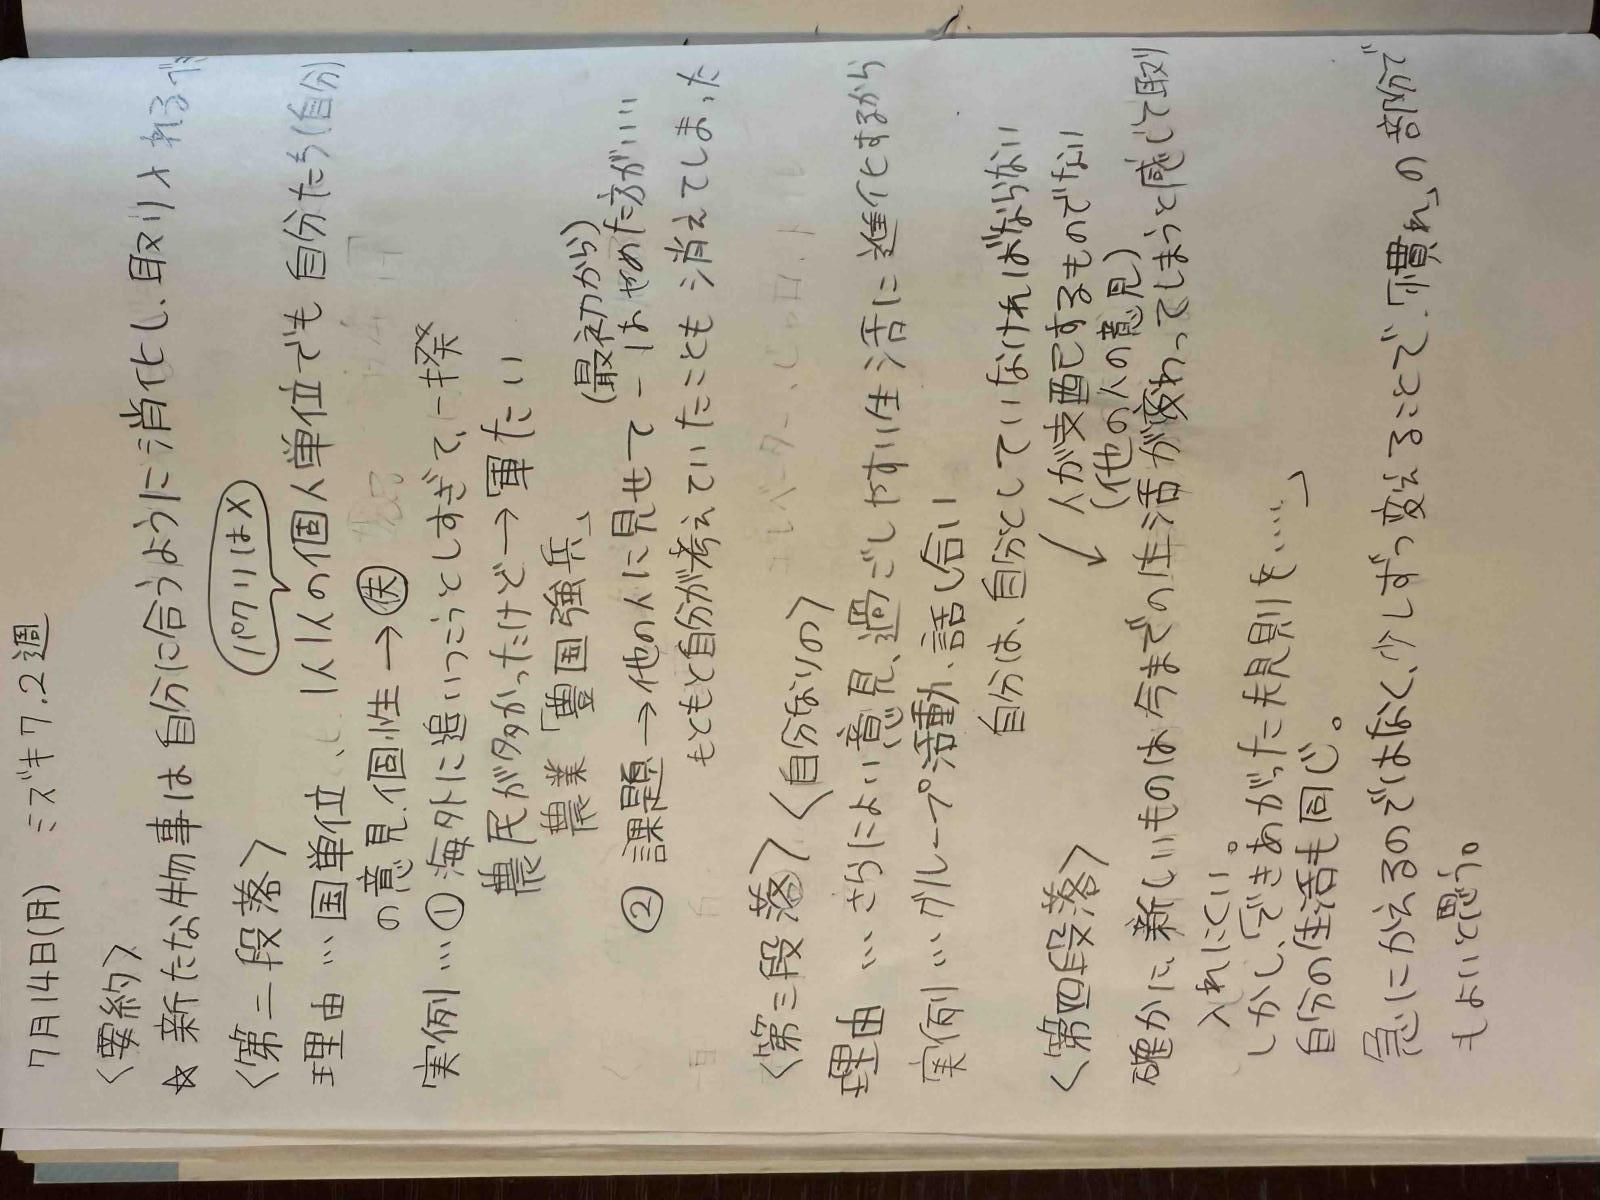 7月14日(月) ミズキ7.2週
<要約>
☆ 新たな物事は自分に合うように消化し、取り入れるべき
<第二段落>
パクリは×
理由 …国単位、1人1人の個人単位でも自分たち(自分)
の意見、個性→失
実例…① 海外に追いつこうとしすぎて、一揆
農民が多かったけど→軍たい
農業「豊国強兵」
(最初から)
② 課題→他の人に見せて ーはやめた方がいい
もともと自分が考えていたことも消えてしまった
<第三段落> <自分なりの>
理由 … さらによい意見、過ごしやすい生活に進化するから
実例…グループ活動、話し合い
自分は、自分としていなければならない
↙ 人が支配するものでない
(他の人の意見)
<第四段落>
確かに、新しいものは今までの生活が変わってしまうと感じて取り
入れにくい。
しかし、「できあがった法則を……」
自分の生活も同じ。
急にかえるのではなく、少しずつ変えることで、「慣れ」の部分で
もよいと思う。